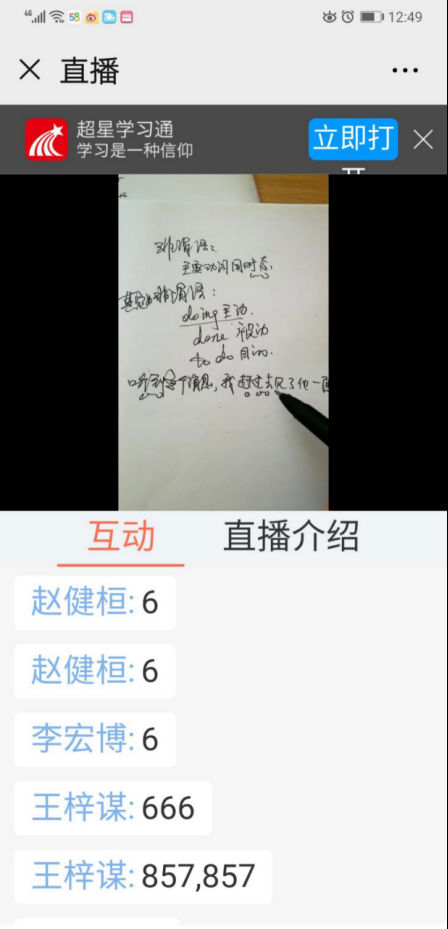 4G 58 12:49
直播
超星学习通
学习是一种信仰
立即打
准谓语:
主要动词用时态.
其它动词 准谓语:
doing 主动.
done 被动
to do 目的.
听到这个消息, 我赶过去见了他一面
互动 直播介绍
赵健桓: 6
赵健桓: 6
李宏博: 6
王梓谋: 666
王梓谋: 857,857